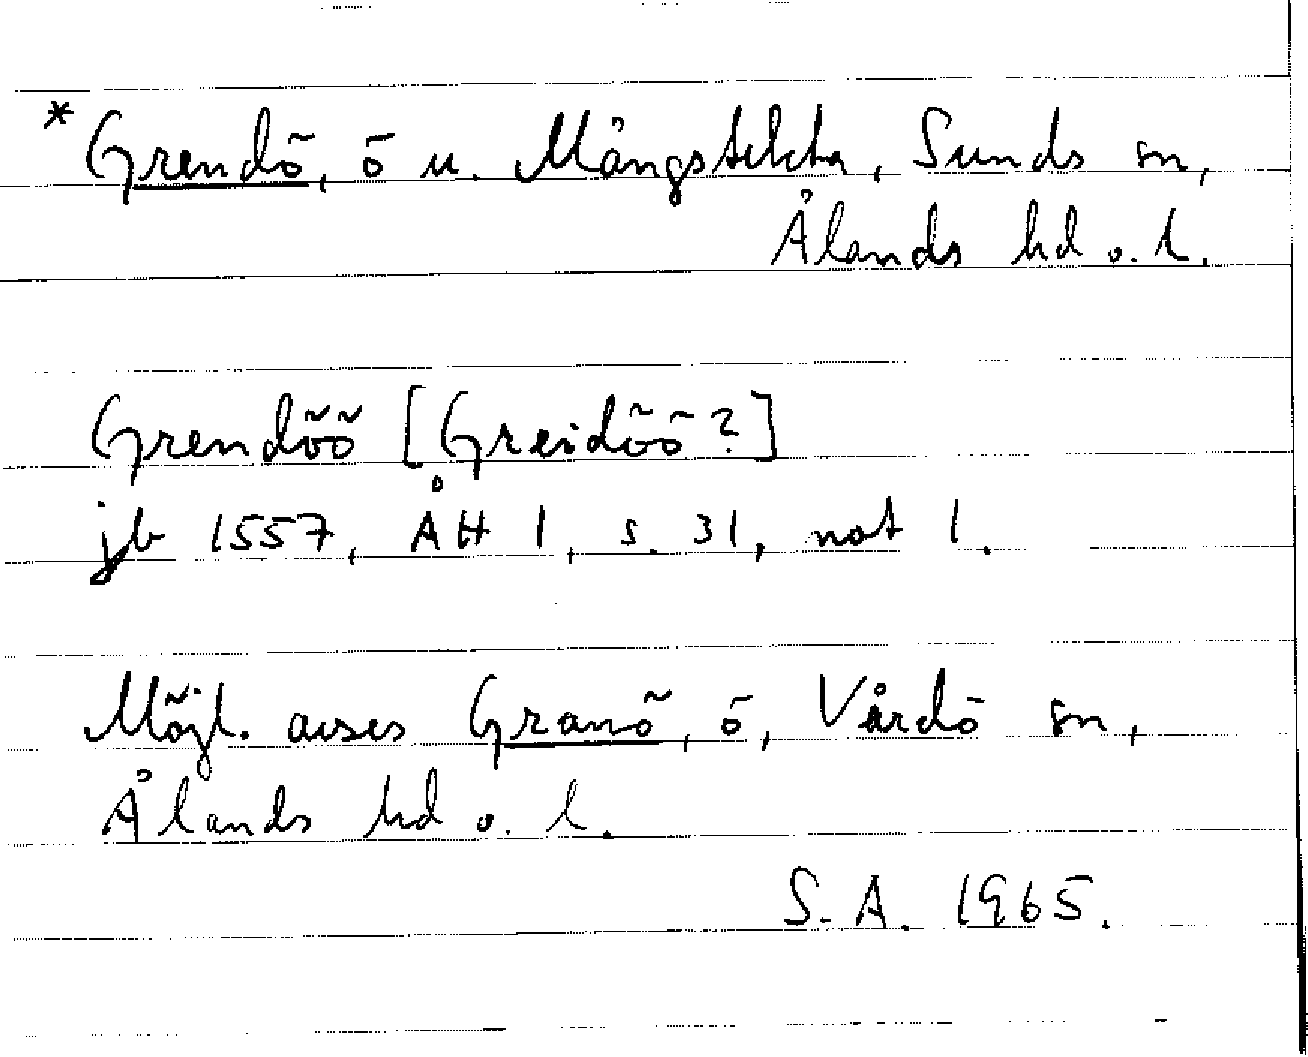 * Grendö, ö u. Mångstekta, Sunds sn,
Ålands hd o. l.
Grendöö [Greidöö?]
jb 1557, ÅH 1, s. 31, not 1.
Möjl. avses Granö, ö, Vårdö sn,
Ålands hd o. l.
S.A. 1965.